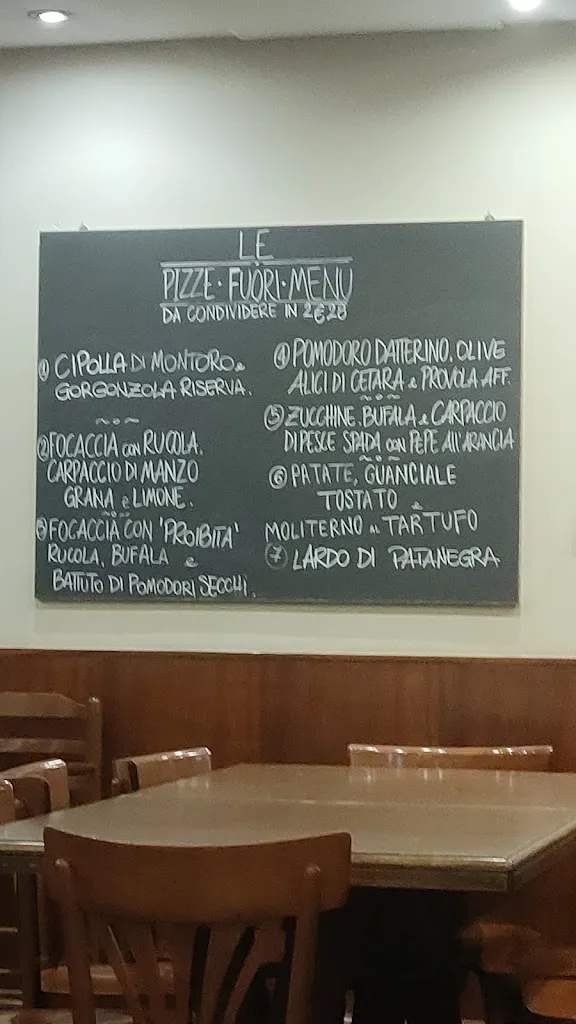 LE
PIZZE·FUORI·MENU
DA CONDIVIDERE IN 2€20
① CIPOLLA DI MONTORO e
GORGONZOLA RISERVA.
② FOCACCIA CON RUCOLA.
CARPACCIO DI MANZO
GRANA e LIMONE.
FOCACCIA CON 'PROIBITA'
RUCOLA, BUFALA e
BATTUTO DI POMODORI SECCHI.
④ POMODORO DATTERINO, OLIVE
ALICI DI CETARA e PROVOLA AFF.
⑤ ZUCCHINE, BUFALA e CARPACCIO
DI PESCE SPADA CON PEPE ALL'ARANCIA
⑥ PATATE, GUANCIALE
TOSTATO e
MOLITERNO AL TARTUFO
⑦ LARDO DI PATANEGRA